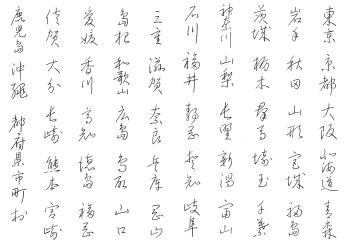 東京 京都 大阪 北海道 青森
岩手 秋田 山形 宮城 福島
茨城 栃木 群馬 埼玉 千葉
神奈川 山梨 長野 新潟 富山
石川 福井 静岡 愛知 岐阜
三重 滋賀 奈良 兵庫 岡山
島根 和歌山 広島 鳥取 山口
愛媛 香川 高知 徳島 福岡
佐賀 大分 長崎 熊本 宮崎
鹿児島 沖縄 都府県市町村